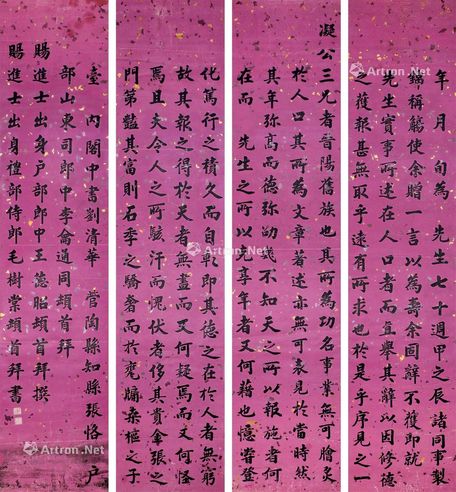 年 月 旬為 先生七十週甲之辰諸同事製
錦稱觴使余贈一言以為壽余固辭不獲即就
先生實事所述在人口者而直舉其辭以因修德
之獲報甚無取乎遠有所求也於是乎序見之一
凝公三兄者晉陽舊族也其所為功名事業無可膾炙
於人口其所為文章著述亦無可表見於當時然
其年弥高而德弥劭幾不知天之所以報施者何
在而 先生之所以享年者又何藉也憶嘗登
化篤行之積久而自彰即其德之在於人者無窮
故其報之得於天者無盡而又何疑焉而又何怪
焉且夫今人之所駭汗而愧伏者侈其貴金張之
門第豔其富則石季之驕奢而於甕牖桑樞之子
臺 內閣中書劉清華 管陶縣知縣張恪 戶
部山東司郎中李通同頓首拜
賜進士出身戶部郎中王德昭頓首拜撰
賜進士出身禮部侍郎毛樹棠頓首拜書
Artron.Net
Artron.Net
Artron.Net
Artron.Net